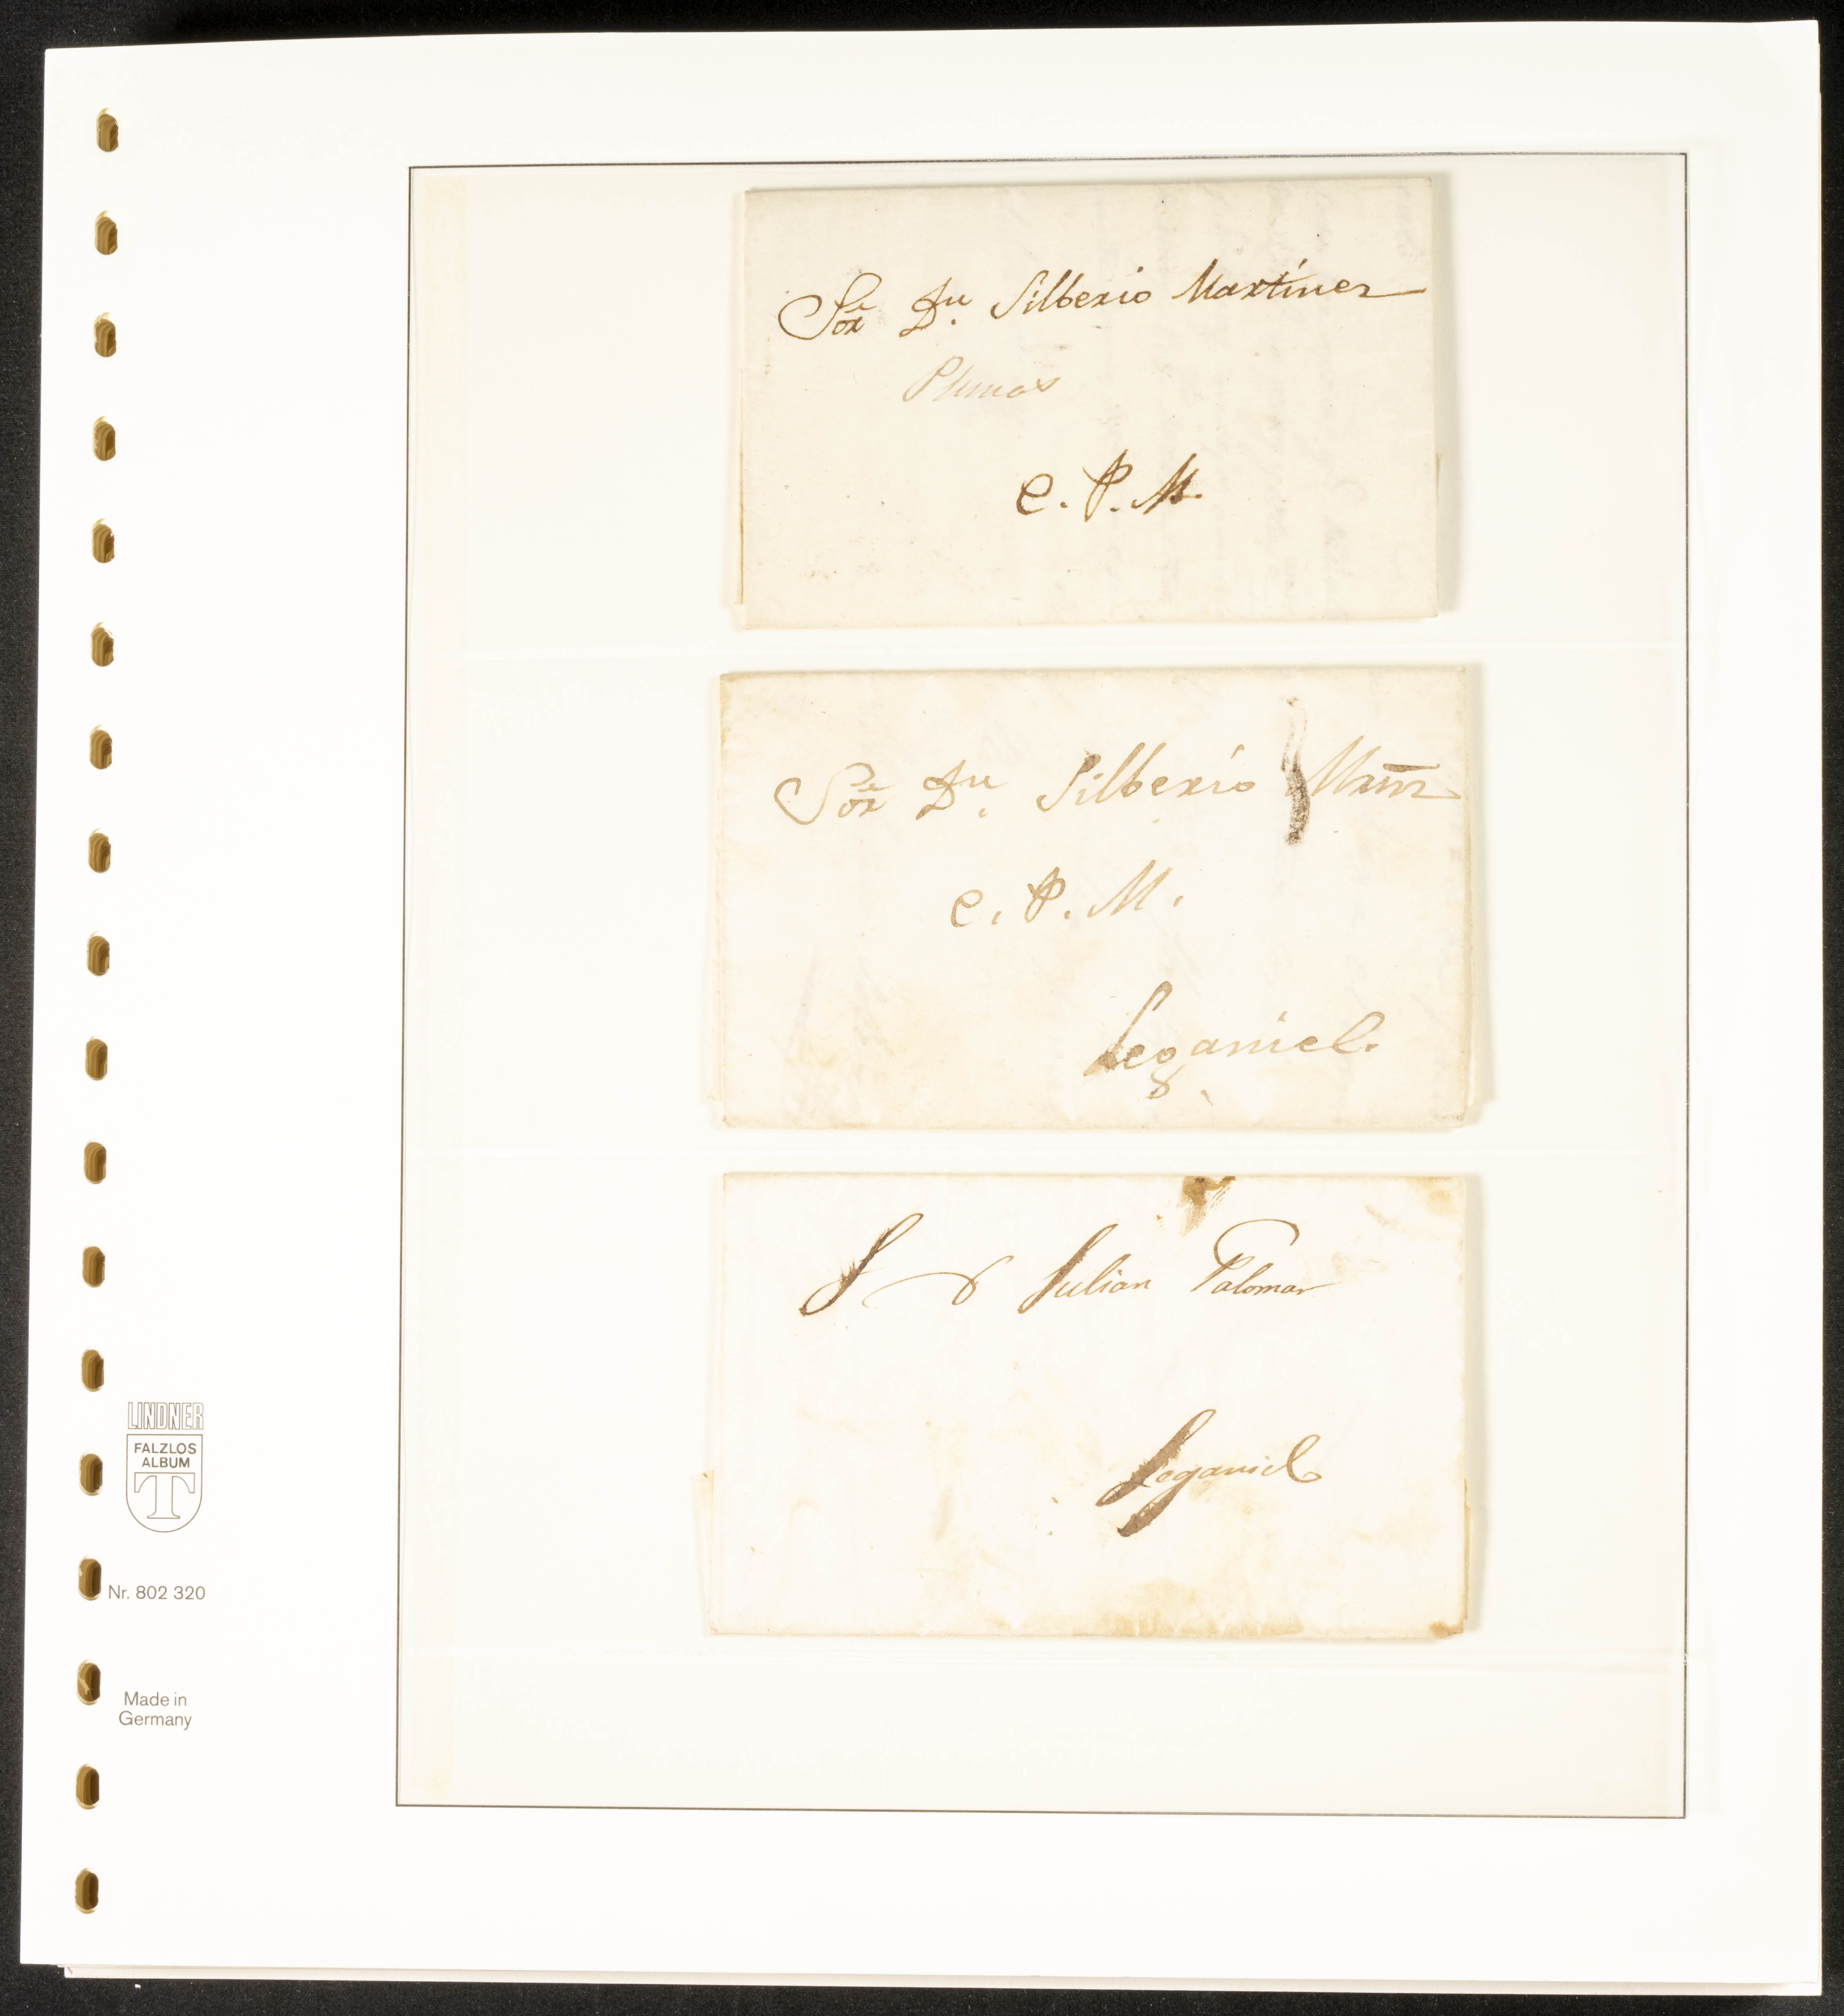 Sor Dn. Silberio Martinez
C. P. M.
Sor Dn. Silberio Mrnz
C. P. M.
Leganiel.
S D Julian Palomar
Leganiel
LINDNER
FALZLOS
ALBUM
T
Nr. 802 320
Made in
Germany